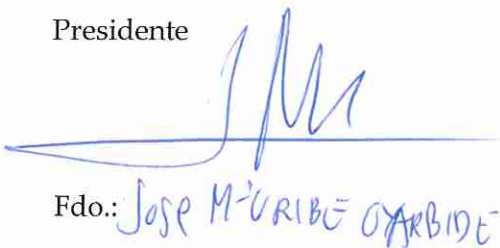 Presidente
Fdo.: Jose Mª URIBE OYARBIDE